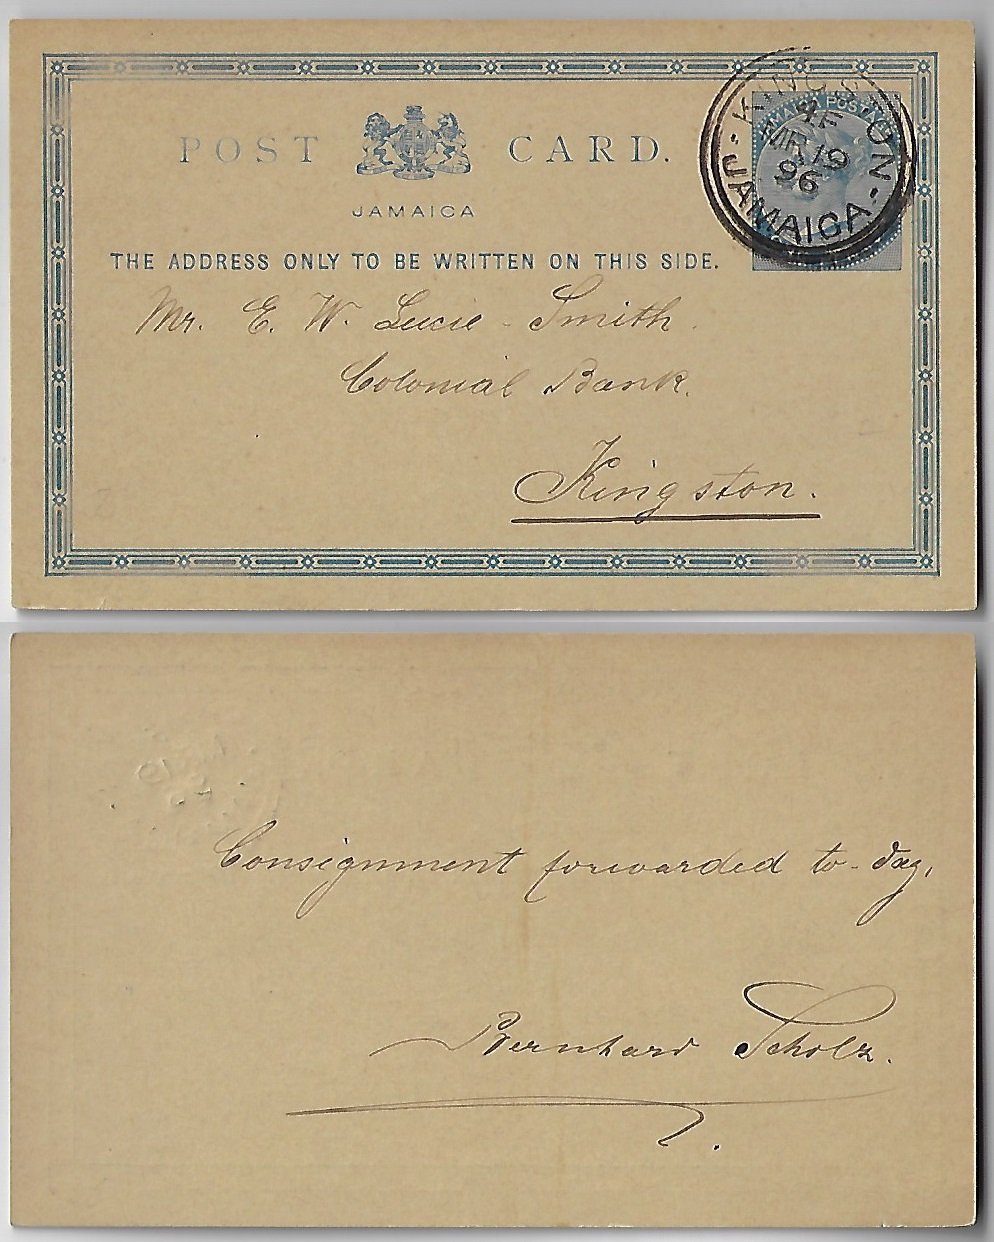 POST CARD.
JAMAICA
THE ADDRESS ONLY TO BE WRITTEN ON THIS SIDE.
JAMAICA POSTAGE
KINGSTON
MR 19
96
JAMAICA
Mr. E. W. Lucie-Smith.
Colonial Bank.
Kingston.
Consignment forwarded to-day,
Bernhard Scholz.